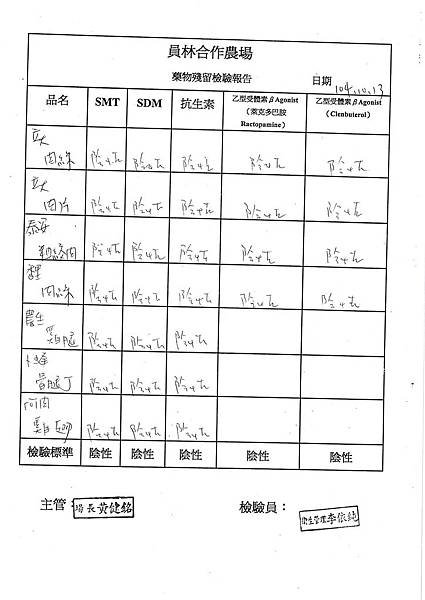 員林合作農場
藥物殘留檢驗報告
日期 104.10.13
品名 SMT SDM 抗生素 乙型受體素βAgonist (萊克多巴胺 Ractopamine) 乙型受體素βAgonist (Clenbuterol)
立大
肉絲 陰性 陰性 陰性 陰性 陰性
立大
肉片 陰性 陰性 陰性 陰性 陰性
泰安
粗絞肉 陰性 陰性 陰性 陰性 陰性
肉絲 陰性 陰性 陰性 陰性 陰性
雞腿 陰性 陰性 陰性 
骨腿丁 陰性 陰性 陰性
雞翅 陰性 陰性 陰性
檢驗標準 陰性 陰性 陰性 陰性 陰性
主管: 場長黃健銘 檢驗員: 衛生管理李依純